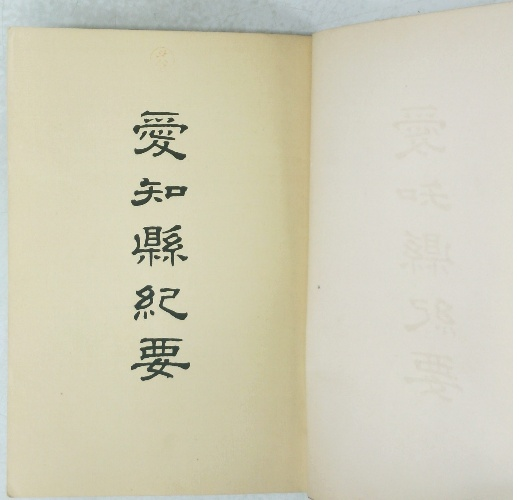 愛知縣紀要